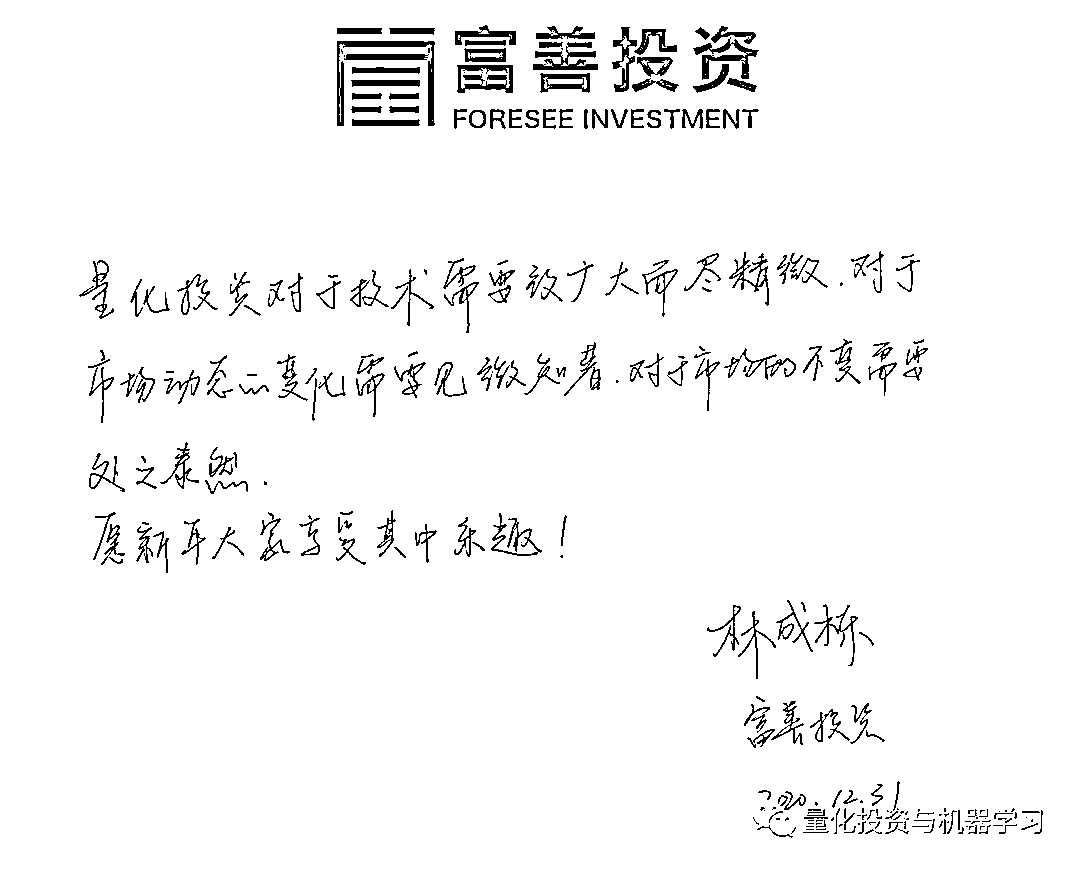 富善投资
FORESEE INVESTMENT
量化投资对于技术需要致广大而尽精微.对于
市场动态的变化需要见微知著.对于市场的不变需要
处之泰然.
愿新年大家享受其中乐趣!
林成栋
富善投资
2020.12.31
量化投资与机器学习